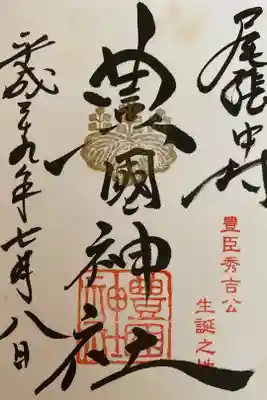 尾張中村
豊臣秀吉公
生誕之地
豊國神社
豊国
神社
平成二九年七月八日